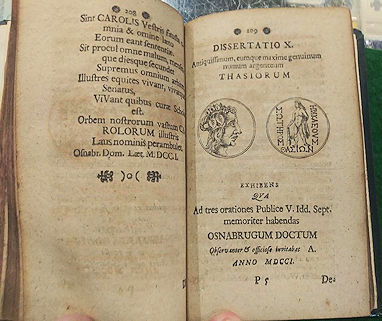 208
Sint CAROLIS Vestris fausta
mnia & omine læto
Eorum eant sententiæ.
Sit procul omne malum,
que diesque secundet
Supremus omnium
Illustres equites vivant,
Senatus,
ViVant quibus curæ
est.
Orbem nostrorum vastum
ROLORUM illustris
Laus nominis perambulet.
Osnabr. Dom. Læt. M. DCCI.
209
DISSERTATIO X.
Antiquissimum, eumque maxime genuinum
numum argenteum
THASIORUM
ΗΡΑΚΛΕΟΥΣ
ΣΩΤΗΡΟΣ
ΘΑΣΙΩΝ
EXHIBENS
QUA
Ad tres orationes Publice V. Idd. Sept.
memoriter habendas
OSNABRUGUM DOCTUM
Observanter & officiose invitabat A.
ANNO MDCCI.
P 5
De-